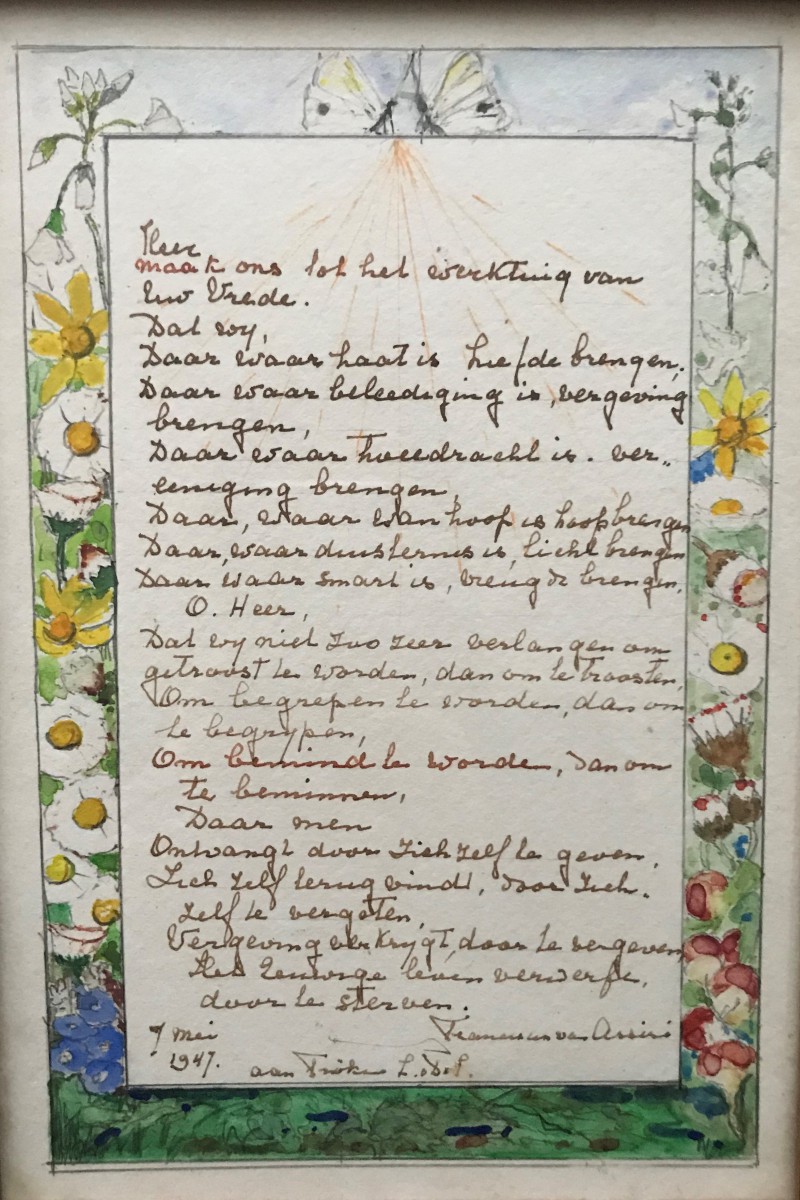 Heer
maak ons tot het werktuig van
Uw Vrede.
Dat wy,
Daar waar haat is liefde brengen.
Daar waar beleediging is, vergeving
brengen,
Daar waar tweedracht is. ver„
eeniging brengen,
Daar, waar wanhoop is hoop brengen
Daar, waar duisternis is, licht brengen
Daar waar smart is, vreugde brengen.
O. Heer,
Dat wy niet zoo zeer verlangen om
getroost te worden, dan om te troosten,
Om begrepen te worden, dan om
te begrypen,
Om bemind te worden, dan om
te beminnen,
Daar men
Ontvangt door zich zelf te geven,
Zich zelf terug vindt, door zich.
zelf te vergeten,
Vergeving verkrygt, door te vergeven,
Het Eeuwige leven verwerft,
door te sterven.
7 mei Franciscus van Assisi
1947. aan